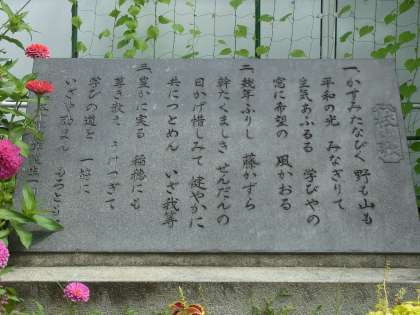 校歌
一 かすみたなびく 野も山も
平和の光 みなぎりて
生気あふるる 学びやの
窓に希望の 風かおる
二 幾年ふりし 藤かずら
幹たくましき せんだんの
日かげ惜しみて 健やかに
共につとめん いざ我等
三 豊かに実る 稲穂にも
学びの道を 一筋に
いざや励まん もろともに